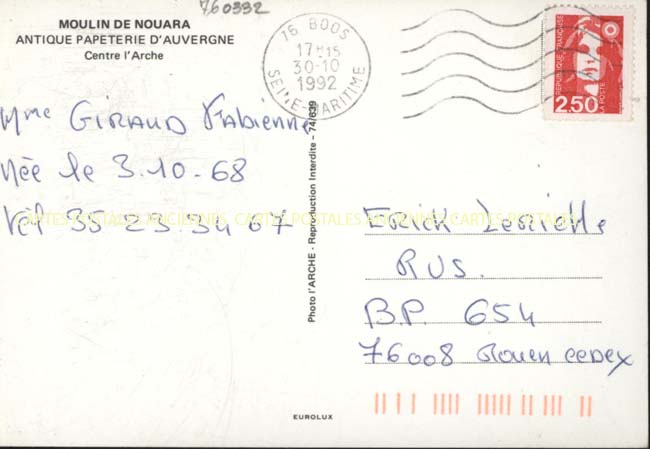 760332
MOULIN DE NOUARA
ANTIQUE PAPETERIE D'AUVERGNE
Centre l'Arche
76 BOOS
17H15
30-10
1992
SEINE-MARITIME
REPUBLIQUE FRANÇAISE
2,50
LA POSTE
Mme GIRAUD Fabienne
Née le 3.10.68
Tél 35 23 34 67
CARTES POSTALES ANCIENNES CARTES POSTALES ANCIENNES CARTES POSTALES
Photo l'ARCHE - Reproduction Interdite - 74/639
Erick
RUS.
B.P. 654
76008 Rouen cedex
EUROLUX